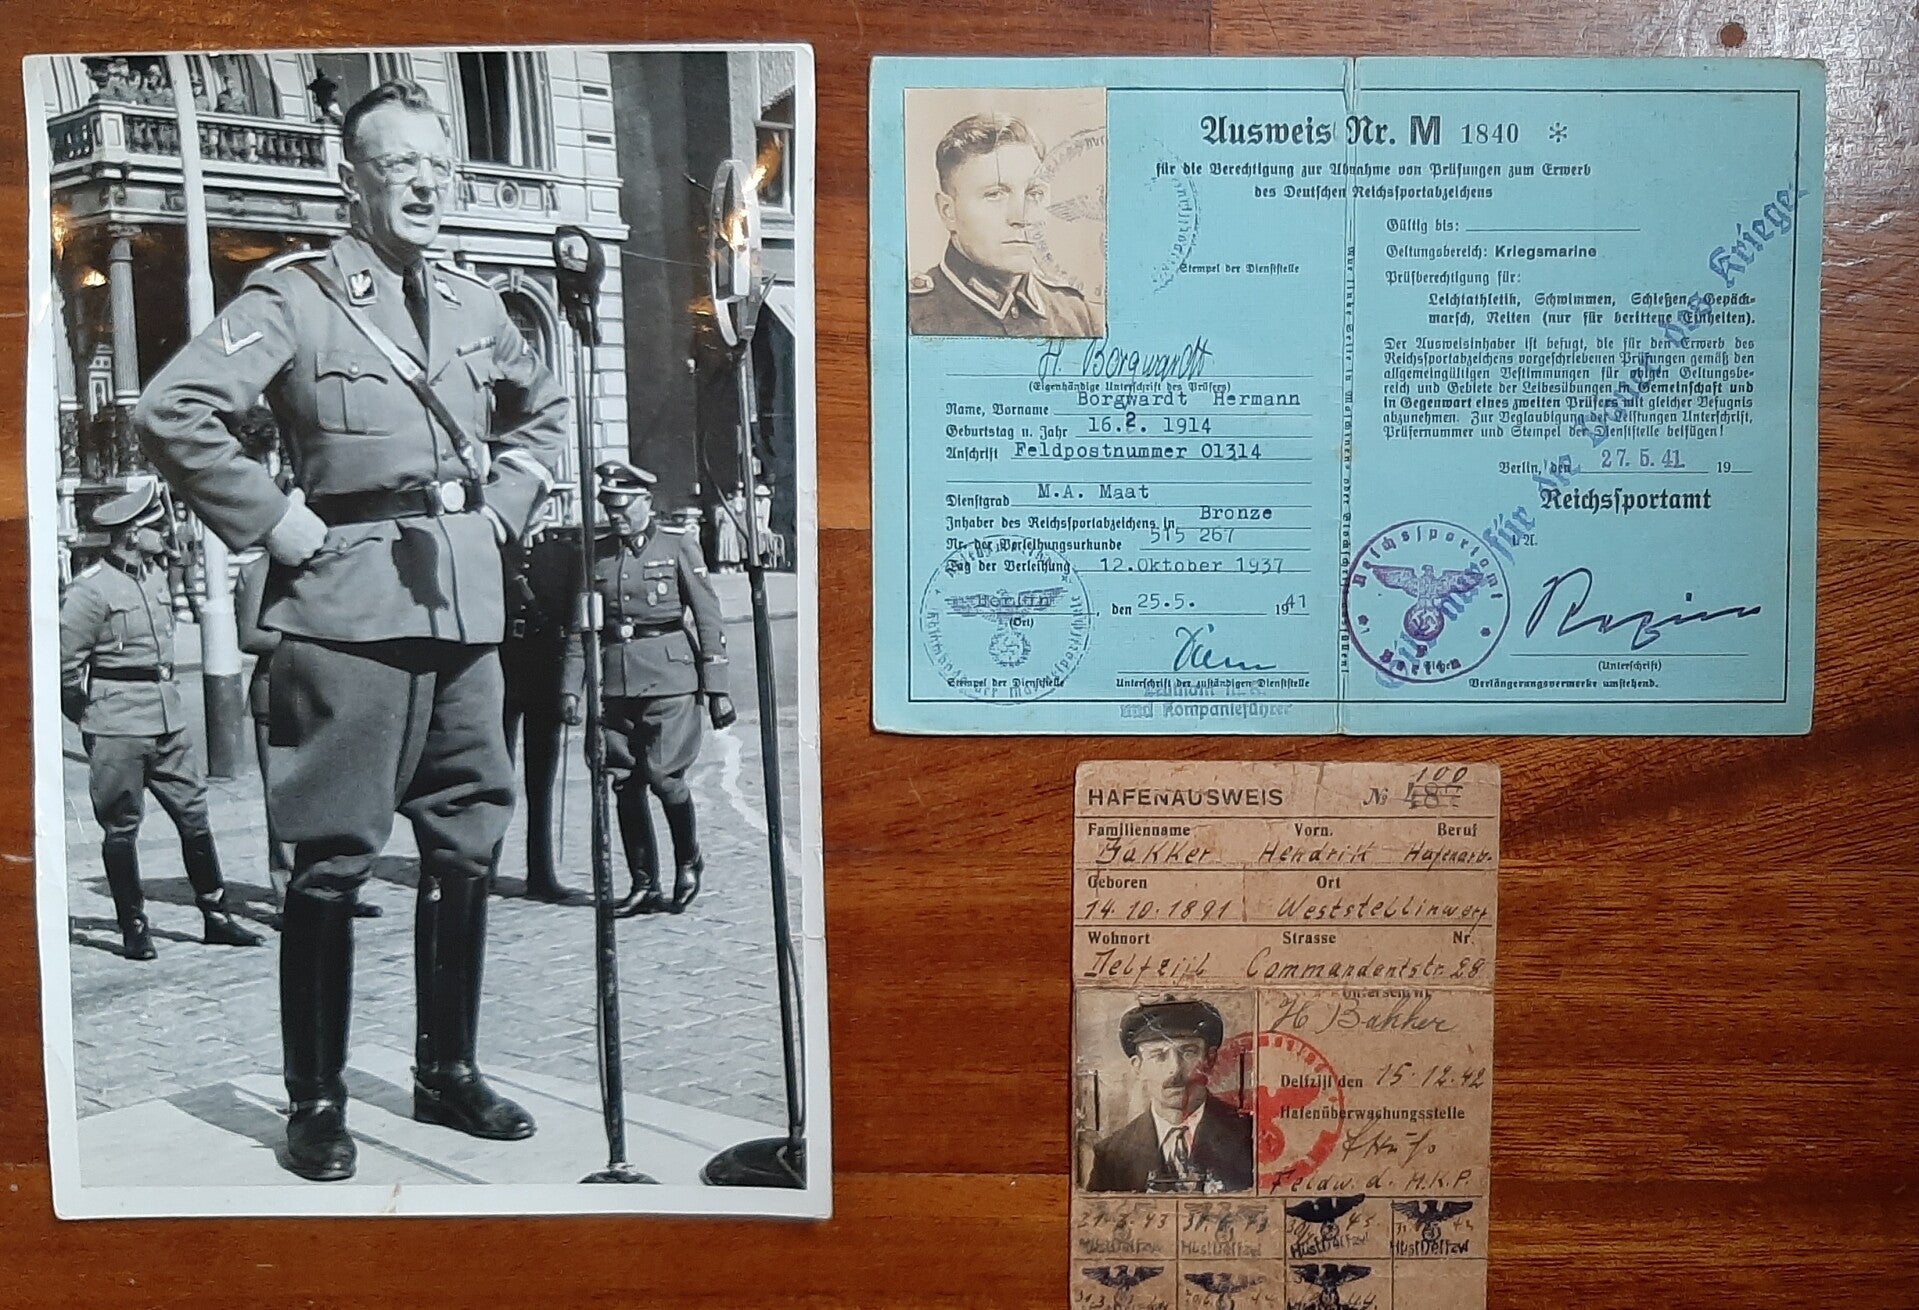 Ausweis Nr. M 1840 *
für die Berechtigung zur Abnahme von Prüfungen zum Erwerb
des Deutschen Reichssportabzeichens
Stempel der Dienststelle
H. Borgwardt
(Eigenhändige Unterschrift des Prüfers)
Name, Vorname Borgwardt Hermann
Geburtstag u. Jahr 16.2. 1914
Anschrift Feldpostnummer 01314
Dienstgrad M.A. Maat
Inhaber des Reichssportabzeichens in Bronze
Nr. der Verleihungsurkunde 515 267
Tag der Verleihung 12.Oktober 1937
(Ort) den 25.5. 1941
Stempel der Dienststelle Unterschrift der zuständigen Dienststelle
und Kompanieführer
Gültig bis:
Geltungsbereich: Kriegsmarine
Prüfberechtigung für:
Leichtathletik, Schwimmen, Schießen, Gepäck-
marsch, Reiten (nur für berittene Einheiten).
Der Ausweisinhaber ist befugt, die für den Erwerb des
Reichssportabzeichens vorgeschriebenen Prüfungen gemäß den
allgemeingültigen Bestimmungen für seinen Geltungsbe-
reich und Gebiete der Leibesübungen in Gemeinschaft und
in Gegenwart eines zweiten Prüfers mit gleicher Befugnis
abzunehmen. Zur Beglaubigung der Leistungen Unterschrift,
Prüfernummer und Stempel der Dienststelle beifügen!
Berlin, den 27. 5. 41 19
Reichssportamt
I.A.
Reichssportamt
Berlin
(Unterschrift)
Verlängerungsvermerke umstehend.
für die Dauer des Krieges
HAFENAUSWEIS № 487 100
Familienname Vorn. Beruf
Bakker Hendrik Hafenarb.
Geboren Ort
14.10.1891 Weststellingwerf
Wohnort Strasse Nr.
Delfzijl Commandentstr. 28
Unterschrift
H Bakker
Delfzijl den 15.12.42
Hafenüberwachungsstelle
Feldw. d. M.K.P.
31.3.43
HüstDelfzyl HüstDelfzyl HüstDelfzyl